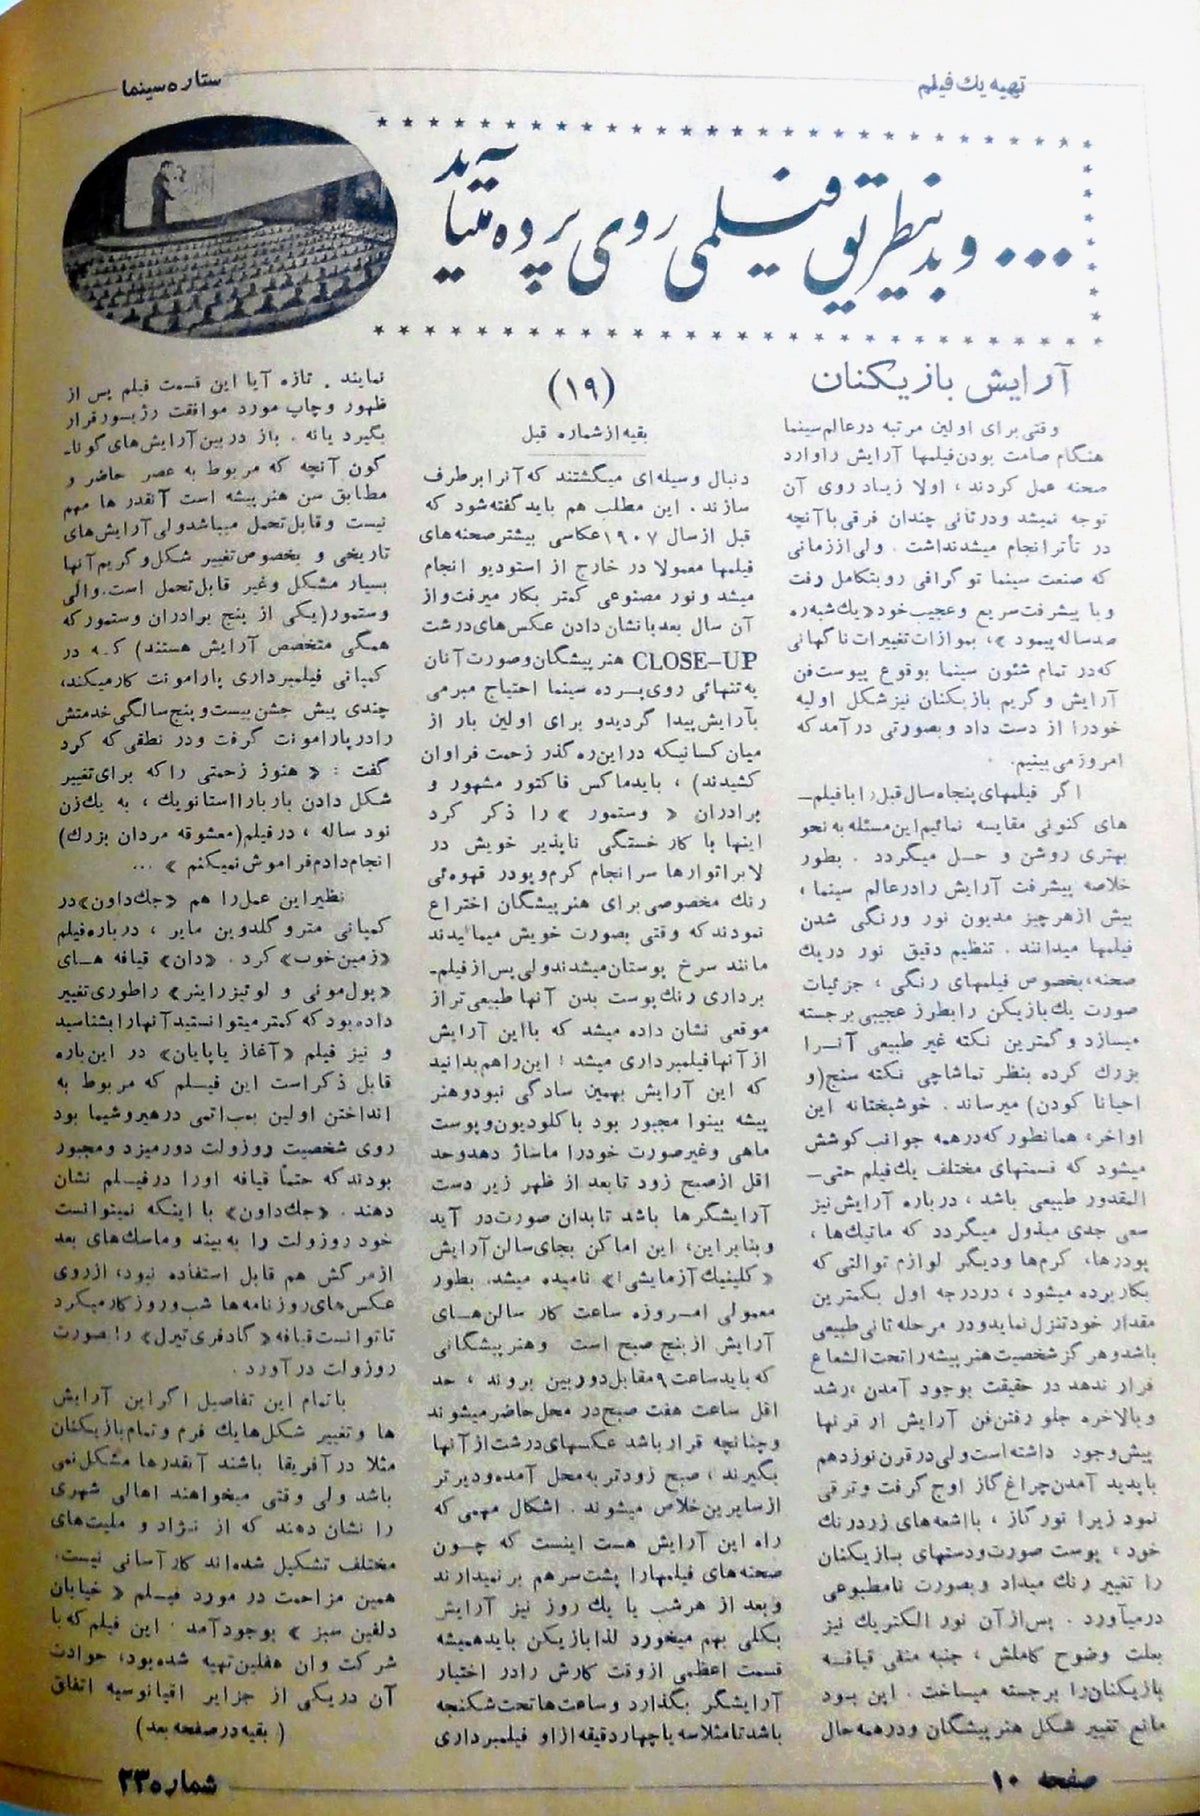 تهیه یك فیلم
ستاره سینما
... و بدینطریق فیلمی روی پرده میآید
آرایش بازیکنان
وقتی برای اولین مرتبه در عالم سینما
هنگام صامت بودن فیلمها آرایش را وارد
صحنه عمل کردند ، اولا زیاد روی آن
توجه نمیشد و در ثانی چندان فرقی با آنچه
در تأتر انجام میشد نداشت . ولی از زمانی
که صنعت سینما توگرافی رو بتکامل رفت
و با پیشرفت سریع و عجیب خود «یك شبه ره
صد ساله پیمود » ، بموازات تغییرات ناگهانی
که در تمام شئون سینما بوقوع پیوست فن
آرایش و گریم بازیکنان نیز شکل اولیه
خود را از دست داد و بصورتی در آمد که
امروز می بینیم .
اگر فیلمهای پنجاه سال قبل را با فیلم-
های کنونی مقایسه نمائیم این مسئله به نحو
بهتری روشن و حل میگردد . بطور
خلاصه پیشرفت آرایش را در عالم سینما ،
بیش از هر چیز مدیون نور و رنگی شدن
فیلمها میدانند . تنظیم دقیق نور در یك
صحنه ، بخصوص فیلمهای رنگی ، جزئیات
صورت یك بازیکن را بطرز عجیبی برجسته
میسازد و کمترین نکته غیر طبیعی آنرا
بزرك کرده بنظر تماشاچی نکته سنج (و
احیانا کودن) میرساند . خوشبختانه این
اواخر ، همانطور که در همه جوانب کوشش
میشود که قسمتهای مختلف یك فیلم حتی-
المقدور طبیعی باشد ، درباره آرایش نیز
سعی جدی مبذول میگردد که ماتیك ها ،
پودرها ، کرم ها و دیگر لوازم توالتی که
بکار برده میشود ، در درجه اول بکمترین
مقدار خود تنزل نماید و در مرحله ثانی طبیعی
باشد و هرگز شخصیت هنرپیشه را تحت الشعاع
قرار ندهد در حقیقت بوجود آمدن ، رشد
و بالاخره جلو رفتن فن آرایش از قرنها
پیش وجود داشته است ولی در قرن نوزدهم
با پدید آمدن چراغ گاز اوج گرفت و ترقی
نمود زیرا نور گاز ، با اشعه های زرد رنك
خود ، پوست صورت و دستهای بازیکنان
را تغییر رنك میداد و بصورت نامطبوعی
در میآورد . پس از آن نور الکتریك نیز
بعلت وضوح کاملش ، جنبه منفی قیافه
بازیکنان را برجسته میساخت . این بود
مانع تغییر شکل هنرپیشگان و در همه حال
(۱۹)
بقیه از شماره قبل
دنبال وسیله ای میگشتند که آنرا برطرف
سازند . این مطلب هم باید گفته شود که
قبل از سال ۱۹۰۷ عکاسی بیشتر صحنه های
فیلمها معمولا در خارج از استودیو انجام
میشد و نور مصنوعی کمتر بکار میرفت و از
آن سال بعد با نشان دادن عکس های درشت
CLOSE-UP هنرپیشگان و صورت آنان
به تنهائی روی پرده سینما احتیاج مبرمی
بآرایش پیدا گردید و برای اولین بار از
میان کسانیکه در این ره گذر زحمت فراوان
کشیدند) ، باید ماکس فاکتور مشهور و
برادران « وستمور » را ذکر کرد
اینها با کار خستگی ناپذیر خویش در
لابراتوارها سرانجام کرم و پودر قهوه ئی
رنك مخصوصی برای هنرپیشگان اختراع
نمودند که وقتی بصورت خویش میمالیدند
مانند سرخ پوستان میشدند ولی پس از فیلم-
برداری رنك پوست بدن آنها طبیعی تر از
موقعی نشان داده میشد که با این آرایش
از آنها فیلمبرداری میشد ! این را هم بدانید
که این آرایش بهمین سادگی نبود و هنر
پیشه بینوا مجبور بود با کلودیون و پوست
ماهی و غیر صورت خود را ماساژ دهد و حد
اقل از صبح زود تا بعد از ظهر زیر دست
آرایشگرها باشد تا بدان صورت در آید
و بنابراین ، این اماکن بجای سالن آرایش
« کلینیك آزمایشی ! » نامیده میشد . بطور
معمولی امروزه ساعت کار سالن های
آرایش از پنج صبح است و هنرپیشگانی
که باید ساعت ۹ مقابل دوربین بروند ، حد
اقل ساعت هفت صبح در محل حاضر میشوند
و چنانچه قرار باشد عکسهای درشت از آنها
بگیرند ، صبح زودتر به محل آمده و دیرتر
از سایرین خلاص میشوند . اشکال مهمی که
راه این آرایش هست اینست که چون
صحنه های فیلمها را پشت سر هم بر نمیدارند
و بعد از هر شب یا یك روز نیز آرایش
بکلی بهم میخورد لذا بازیکن باید همیشه
قسمت اعظمی از وقت کارش را در اختیار
آرایشگر بگذارد و ساعت ها تحت شکنجه
باشد تا مثلا سه یا چهار دقیقه از او فیلمبرداری
نمایند . تازه آیا این قسمت فیلم پس از
ظهور و چاپ مورد موافقت رژیسور قرار
بگیرد یا نه . باز در بین آرایش های گونا-
گون آنچه که مربوط به عصر حاضر و
مطابق سن هنرپیشه است آنقدرها مهم
نیست و قابل تحمل میباشد ولی آرایش های
تاریخی و بخصوص تغییر شکل و گریم آنها
بسیار مشکل و غیر قابل تحمل است . والی
وستمور (یکی از پنج برادران وستمور که
همگی متخصص آرایش هستند) که در
کمپانی فیلمبرداری پارامونت کار میکند ،
چندی پیش جشن بیست و پنج سالگی خدمتش
را در پارامونت گرفت و در نطقی که کرد
گفت : « هنوز زحمتی را که برای تغییر
شکل دادن باربارا استانویك ، به یك زن
نود ساله ، در فیلم (معشوقه مردان بزرك)
انجام دادم فراموش نمیکنم » ...
نظیر این عمل را هم «جك داون» در
کمپانی مترو گلدوین مایر ، درباره فیلم
«زمین خوب» کرد . «دان» قیافه های
«پول مونی و لوئیز راینر» را طوری تغییر
داده بود که کمتر میتوانستید آنها را بشناسید
و نیز فیلم «آغاز یا پایان» در این باره
قابل ذکر است این فیلم که مربوط به
انداختن اولین بمب اتمی در هیروشیما بود
روی شخصیت روزولت دور میزد و مجبور
بودند که حتماً قیافه او را در فیلم نشان
دهند . «جك داون» با اینکه نمیتوانست
خود روزولت را به بیند و ماسك های بعد
از مرگش هم قابل استفاده نبود ، از روی
عکس های روزنامه ها شب و روز کار میکرد
تا توانست قیافه «گادفری تیرل» را بصورت
روزولت در آورد .
با تمام این تفاصیل اگر این آرایش
ها و تغییر شکل ها یك فرم و تمام بازیکنان
مثلا در آفریقا باشند آنقدرها مشکل نمی
باشد ولی وقتی میخواهند اهالی شهری
را نشان دهند که از نژاد و ملیت های
مختلف تشکیل شده اند کار آسانی نیست .
همین مزاحمت در مورد فیلم « خیابان
دلفین سبز » بوجود آمد . این فیلم که با
شرکت وان هفلین تهیه شده بود ، حوادث
آن در یکی از جزایر اقیانوسیه اتفاق
( بقیه در صفحه بعد )
صفحه ۱۰
شماره ۲۳۰